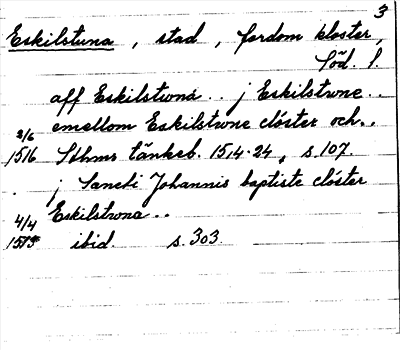 3
Eskilstuna, stad, fordom kloster,
Söd. l.
aff Eskilstwna .. j Eskilstwne ..
emellom Eskilstwne clóster och..
2/6
1516 Sthms tänkeb. 1514-24, s. 107.
j Sancti Johannis baptiste clóster
4/4 Eskilstwna ..
ibid. s. 303.